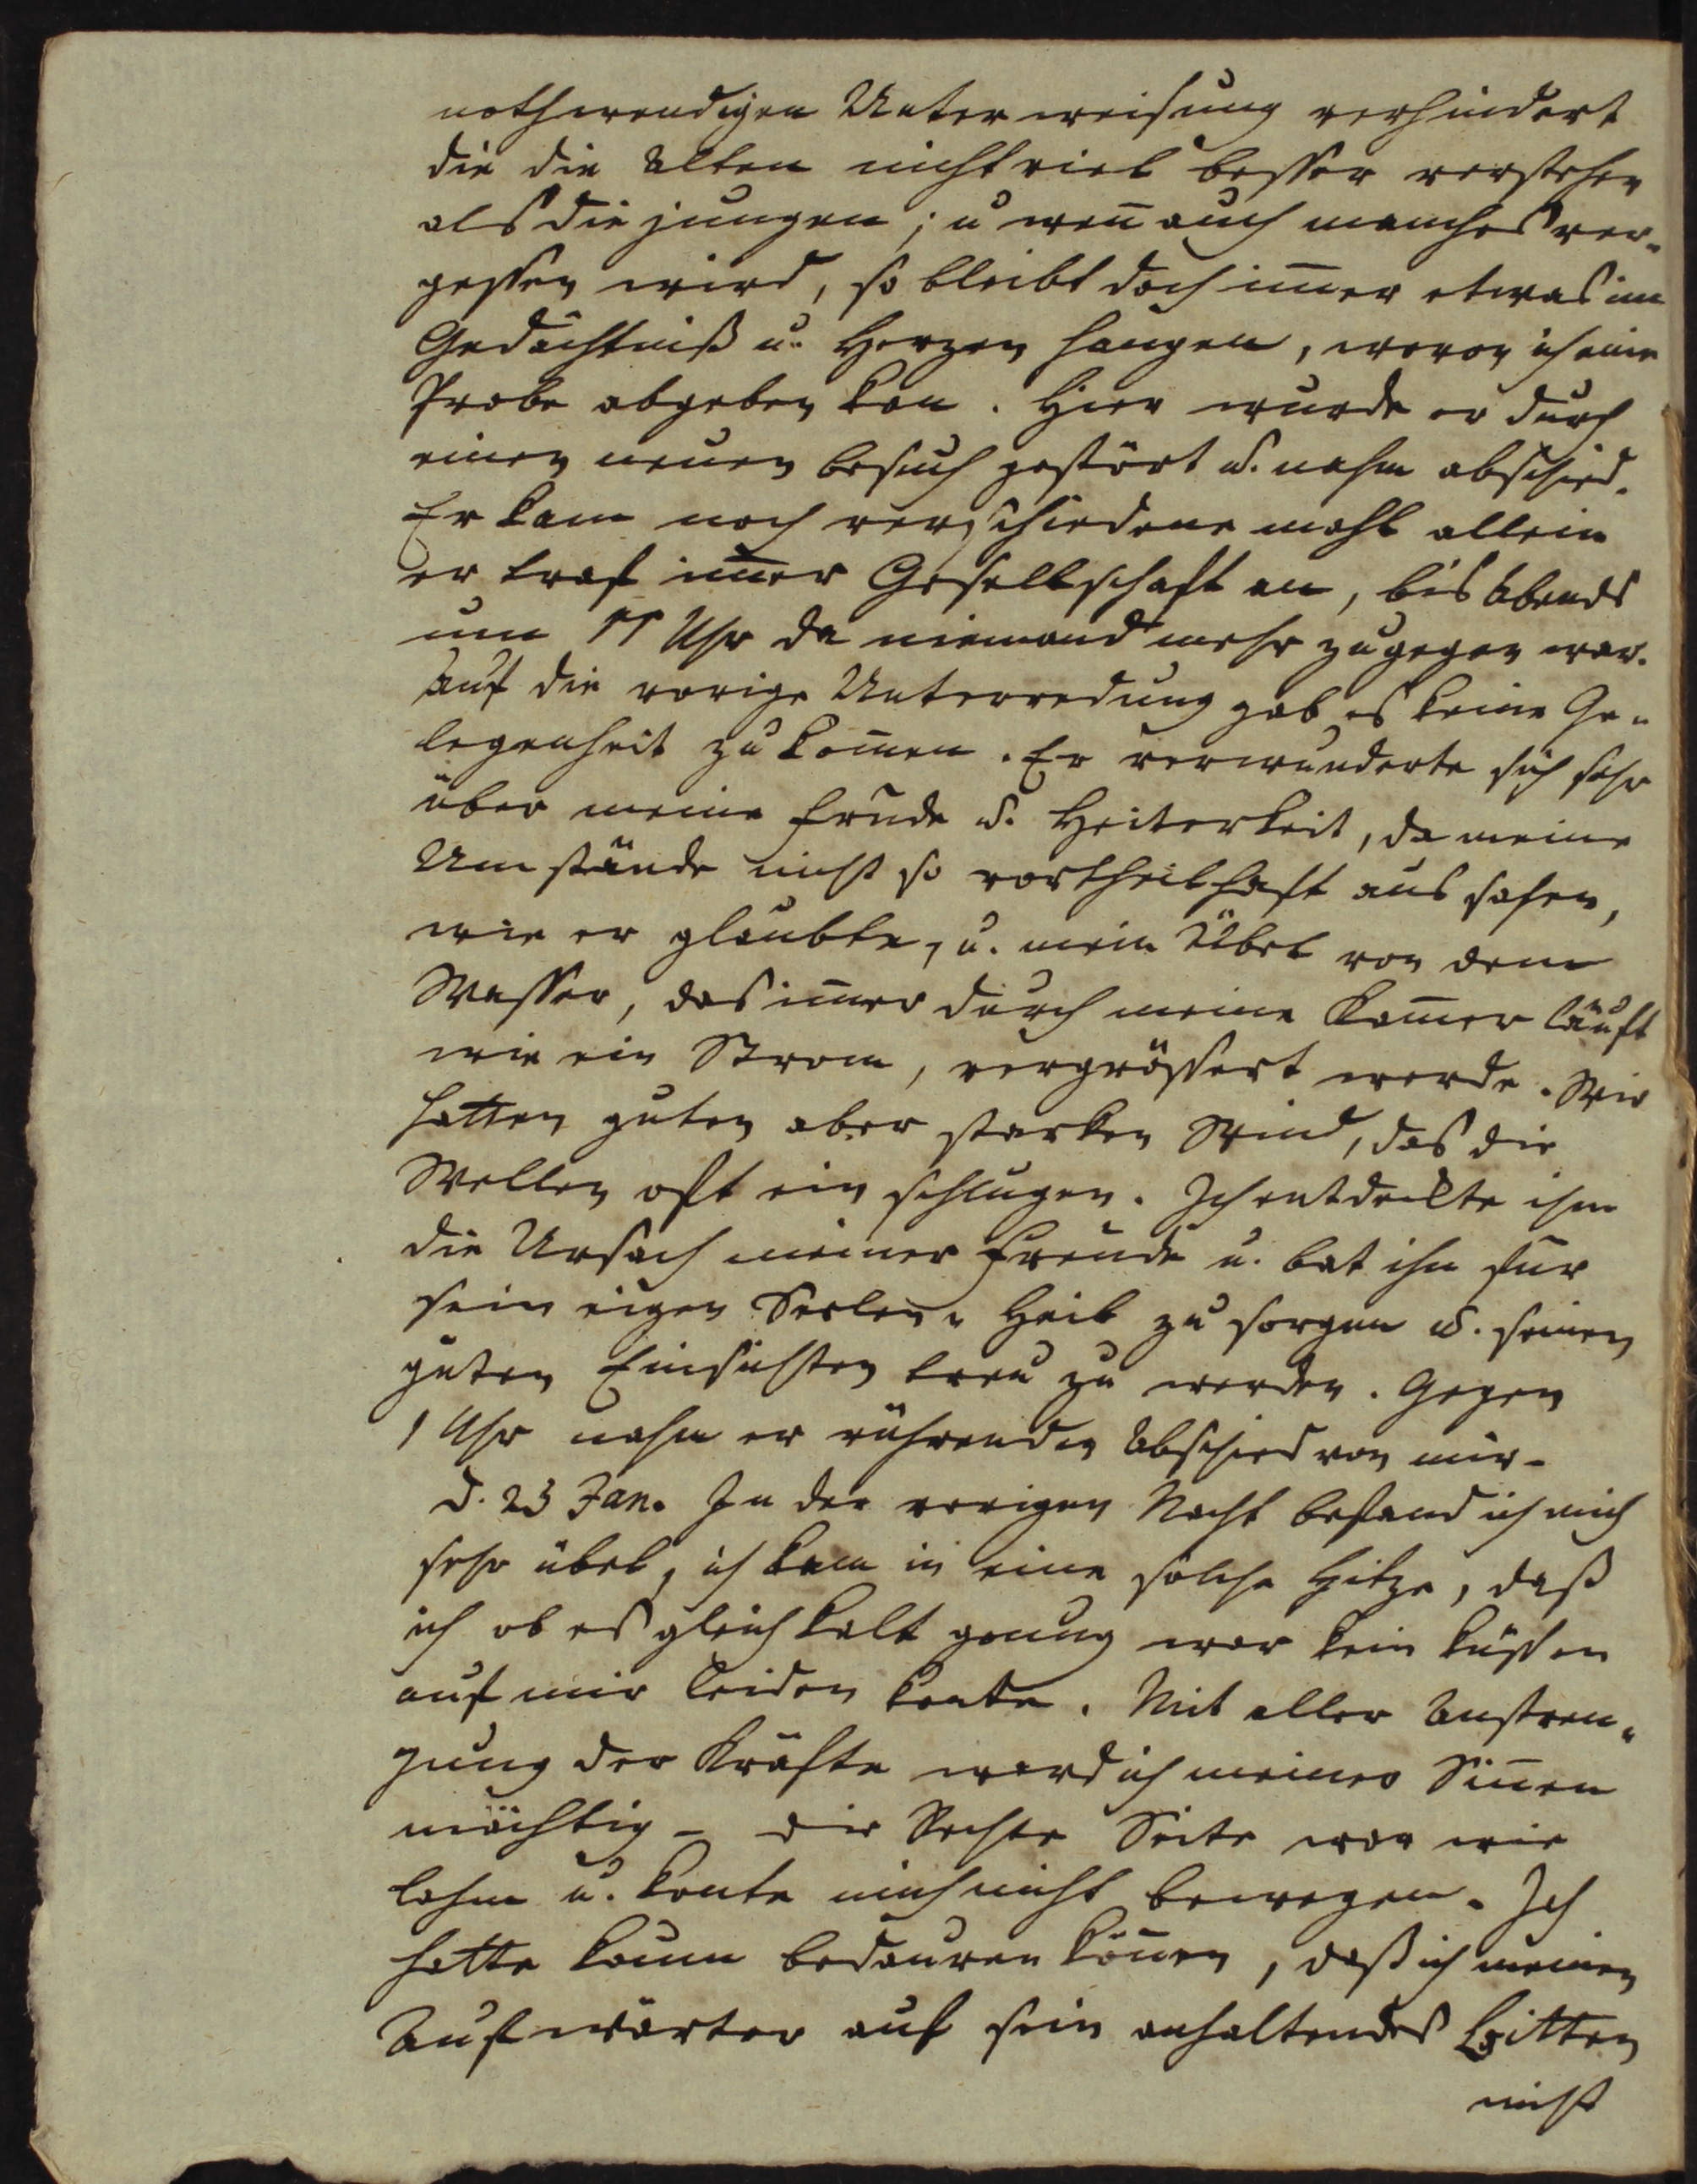 nothwendigen Unterweisung verhindert
die die Alten nicht viel besser verstehen
als die jungen; u weñ auch manches ver-
gessen wird, so bleibt doch im̄er etwas im
Gedächtniß u. Herzen hangen, wovon ich eine
Probe abgeben kan. Hier wurde er durch
einen neuen besuch gestört u. nahm abschied.
Er kam noch verschiedene mahl allein
er traf im̄er Gesellschaft an, bis Abends
um 11 Uhr da niemand mehr zugegen war.
Auf die vorige Unterredung gab es keine Ge-
legenheit zu kom̄en. Er verwunderte sich sehr
über meine Freude u. Heiterkeit, da meine
Umstände nicht so vortheilhaft aus sahen,
wie er glaubte, u. mein Übel von dem
Wasser, das im̄er durch meine Kam̄er läuft
wie ein Strom, vergrössert werde. Wir
hatten guten aber starken Wind, das die
Wellen oft ein schlugen. Ich entdeckte ihm
die Ursach meiner Freude u. bat ihn für
sein eigen Seelen-Heil zu sorgen u. seinen
guten Einsichten treu zu werden. Gegen
1 Uhr nahm er rührenden Abschied von mir-
d. 23 Jan. In der vorigen Nacht befand ich mich
sehr übel, ich kam in eine solche Hitze, daß
ich ob es gleich kalt genung war kein küssen
auf mir leiden konte. Mit aller Anstren-
gung der Kräfte ward ich meiner Siñen
mächtig - die Rechte Seite war wie
lahm u. konte mich nicht bewegen. Ich
hatte kaum bedauren köñen, daß ich meinen
Aufwärter auf sein anhaltendes Bitten
nicht